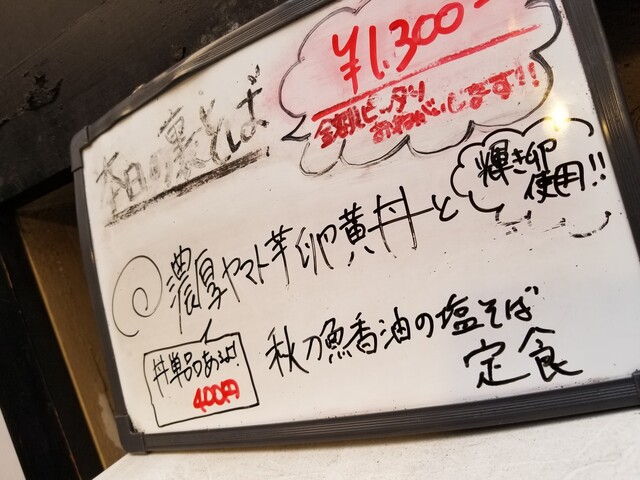 本日の裏そば
¥1,300-
金額ピッタリ
おねがいします!!
濃厚ヤマト芋卵黄丼と
輝き卵
使用!!
秋刀魚香油の塩そば
定食
丼単品あるよ!
400円